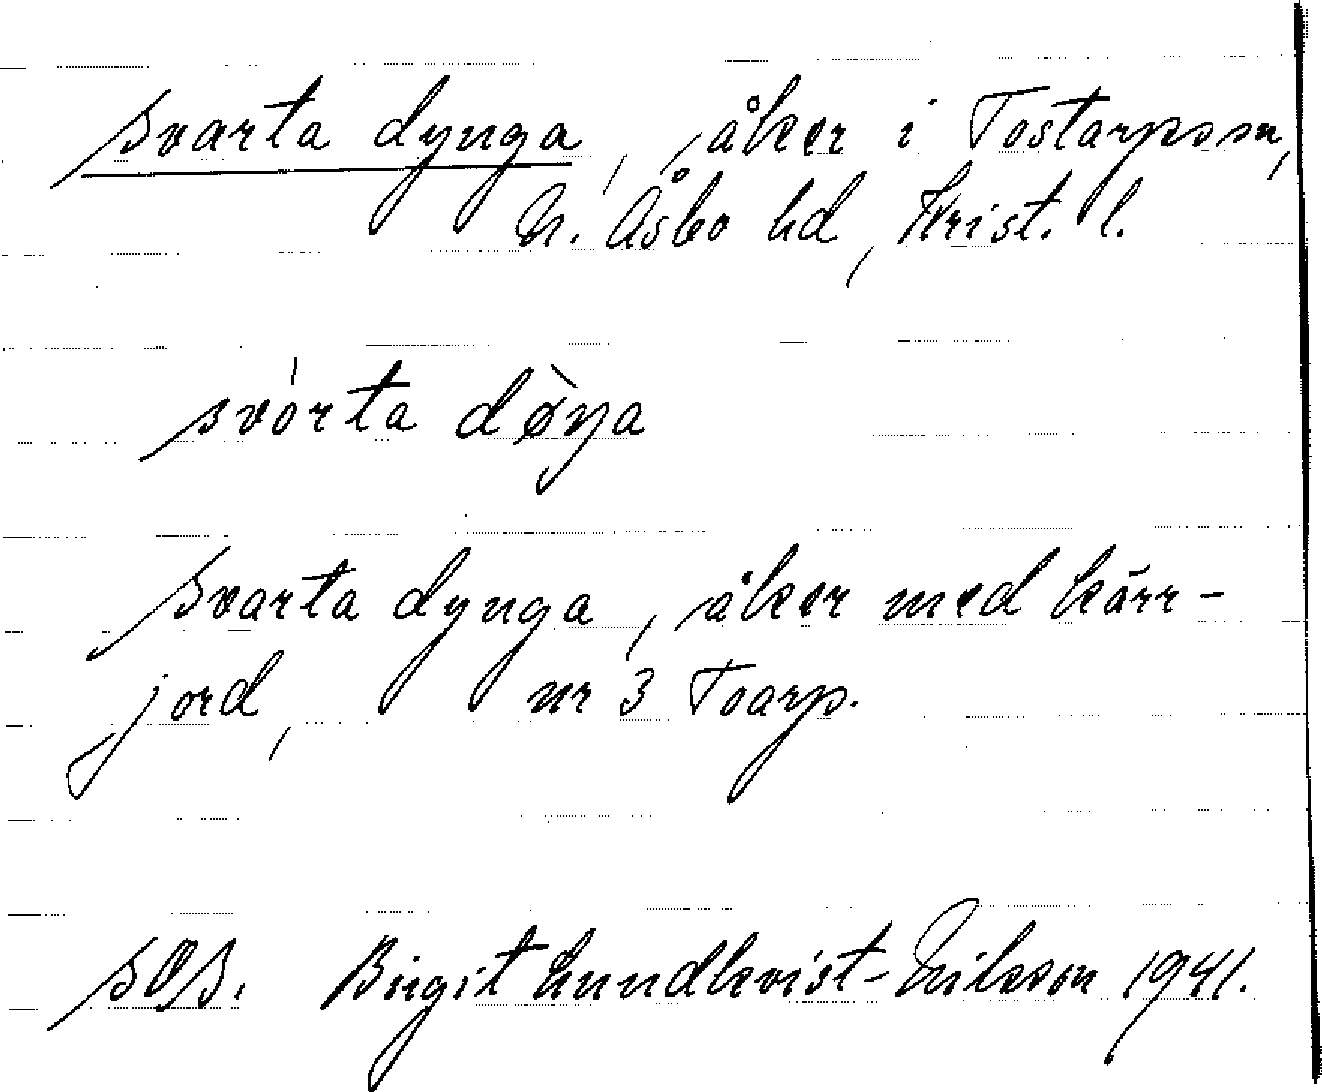 Svarta dynga, åker i Tostarpssn,
N. Åsbo hd, Krist. l.
svórta dø̀ŋa
Svarta dynga, åker med kärr-
jord, nr 3 Toarp.
Birgit Lundkvist-Nilsson 1941.